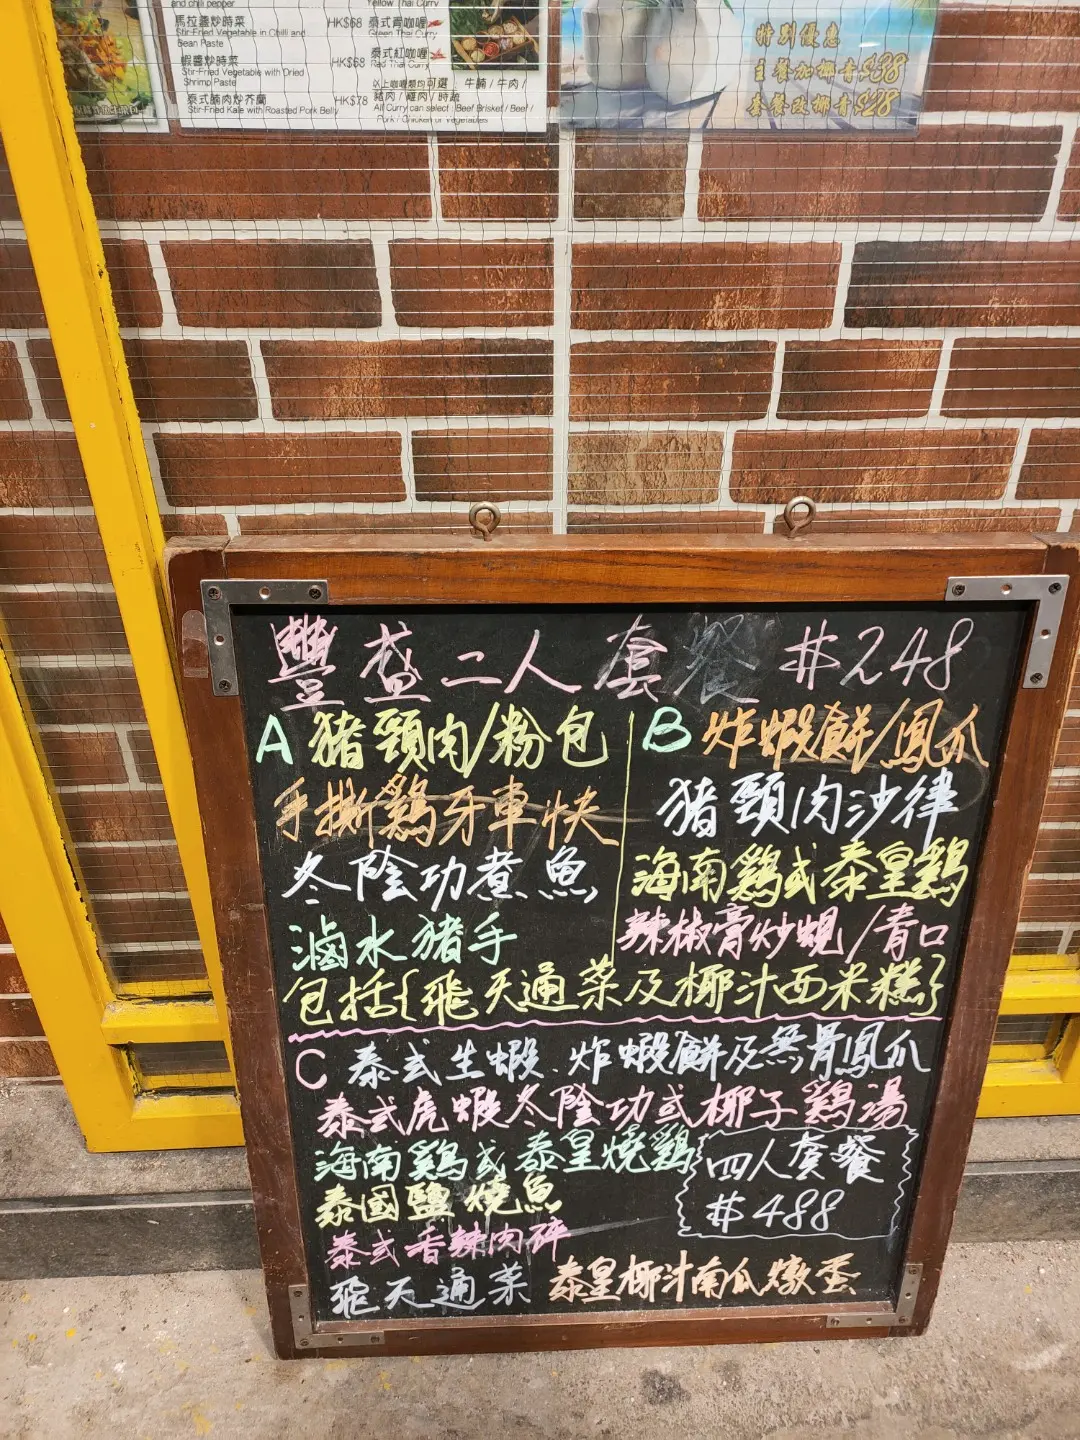 and chili pepper
馬拉盞炒時菜
Stir-Fried Vegetable in Chilli and
Bean Paste
蝦醬炒時菜
Stir-Fried Vegetable with Dried
Shrimp Paste
泰式腩肉炒芥蘭
Stir-Fried Kale with Roasted Pork Belly
Yellow Thai Curry
HK$68 泰式青咖喱
Green Thai Curry
HK$68 泰式紅咖喱
Red Thai Curry
HK$78 以上咖喱類均可選 牛腩/牛肉/
豬肉/雞肉/時蔬
All Curry can select Beef Brisket / Beef /
Pork / Chicken or Vegetables
特別優惠
主餐加椰青$38
套餐改椰青$28
豐盛二人套餐 $248
A 猪頸肉/粉包
手撕鷄牙車快
冬陰功煮魚
滷水猪手
B 炸蝦餅/鳳爪
猪頸肉沙律
海南鷄或泰皇鷄
辣椒膏炒蜆/青口
包括{飛天通菜及椰汁西米糕}
C 泰式生蝦.炸蝦餅及無骨鳳爪
泰式虎蝦冬陰功或椰子鷄湯
海南鷄或泰皇燒鷄
泰國鹽燒魚
泰式香辣肉碎
四人套餐
$488
飛天通菜 泰皇椰汁南瓜燉蛋